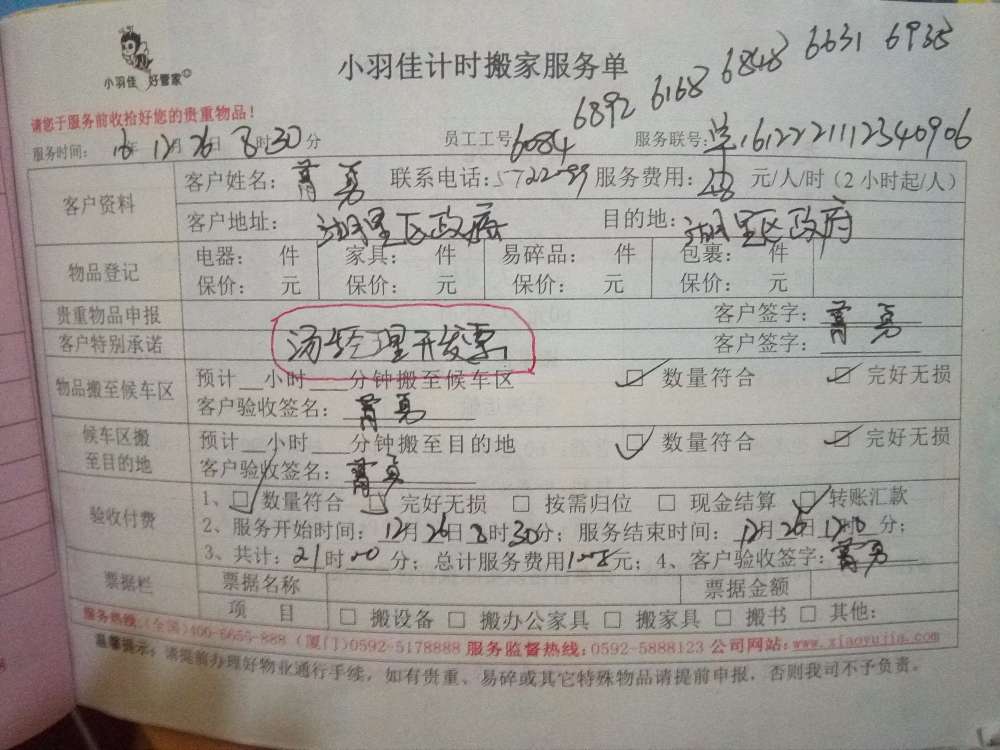 小羽佳 好管家
小羽佳计时搬家服务单
6892 6168 6848 6631 6935
请您于服务前收拾好您的贵重物品!
服务时间: 16年12月26日8时30分 员工工号6084 服务联号: 1612221112340906
客户资料
客户姓名: 勇 联系电话: 服务费用: 元/人/时(2小时起/人)
客户地址: 湖里区政府 目的地: 湖里区政府
物品登记
电器: 件 家具: 件 易碎品: 件 包裹: 件
保价: 元 保价: 元 保价: 元 保价: 元
贵重物品申报 客户签字: 勇
客户特别承诺 汤经理开发票 客户签字: 勇
物品搬至候车区
预计__小时___分钟搬至候车区 ☑ 数量符合 ☑ 完好无损
客户验收签名: 勇
候车区搬至目的地
预计__小时___分钟搬至目的地 ☑ 数量符合 ☑ 完好无损
客户验收签名: 勇
验收付费
1、☑ 数量符合 ☑ 完好无损 □ 按需归位 □ 现金结算 ☑ 转账汇款
2、服务开始时间: 12月26日8时30分; 服务结束时间: 12月26日12时 分;
3、共计: 21时 分; 总计服务费用 元; 4、客户验收签字: 勇
票据栏 票据名称 票据金额
项 目 □ 搬设备 □ 搬办公家具 □ 搬家具 □ 搬书 □ 其他:
服务热线:(全国)400-6655-888 (厦门)0592-5178888 服务监督热线:0592-5888123 公司网站:www.xiaoyujia.com
温馨提示: 请提前办理好物业通行手续, 如有贵重、易碎或其它特殊物品请提前申报, 否则我司不予负责。